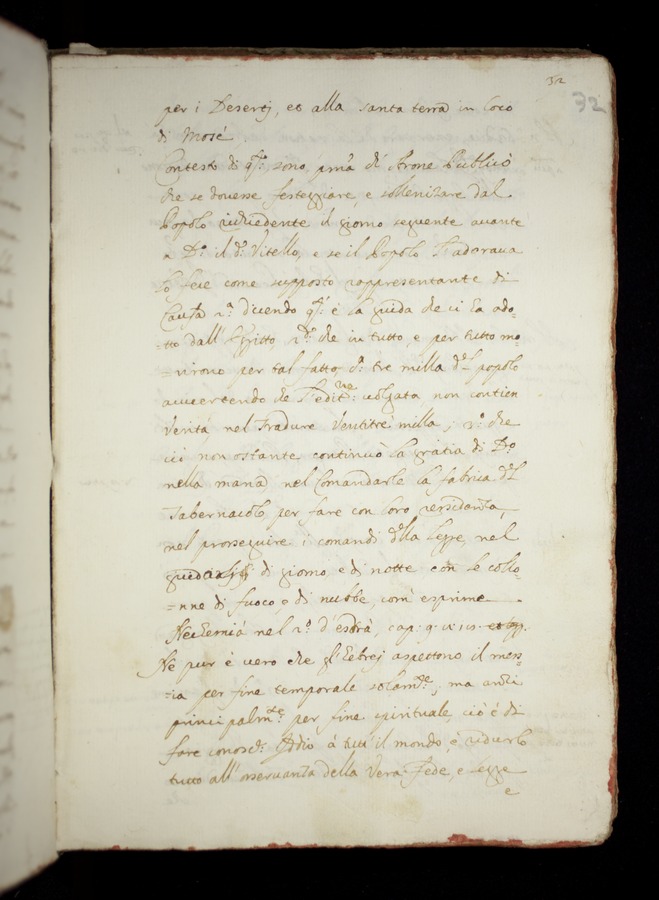 32
32
per i Desertj, et alla santa terra in loco
di Mosé
Contesti di q.ti sono, pma di Arone Publicò
che se dovesse festeggiare, e sollenizare dal
Popolo richiedente il giorno seguente avante
a D.o il d.o Vitello, e se il Popolo l'adorava
lo fece come supposto rappresentante di
Causa 2.a dicendo q.sto è la guida che ci ha ado=
=tto dall'Egitto, 2.o che in tutto, e per tutto mo=
=rirono per tal fatto, tre milla d.l popolo
avvertendo che l'edit.ne volgata non contien
verità nel Tradure Ventitrè milla; 3.o che
ciò non ostante continuò la gratia di D.o
nella manà, nel Comandarle la fabrica d.l
Tabernacolo per fare con loro residenza,
nel proseguire i comandi d.lla legge, nel
guidarlj di giorno, e di notte con le collo=
=nne di fuoco e di nubbe, com' esprime
Nechemià nel 2.o d'esdrà, cap. 9.
Nè pur è vero che gl'hebrej aspettono il mes=
=ia per fine temporale solam.te, ma anzi
principalm.te per fine spirituale, ciò è di
fare conosc.r Iddio à tutt' il mondo, è ridurlo
tutto all'osservanza della Vera Fede, e legge
e